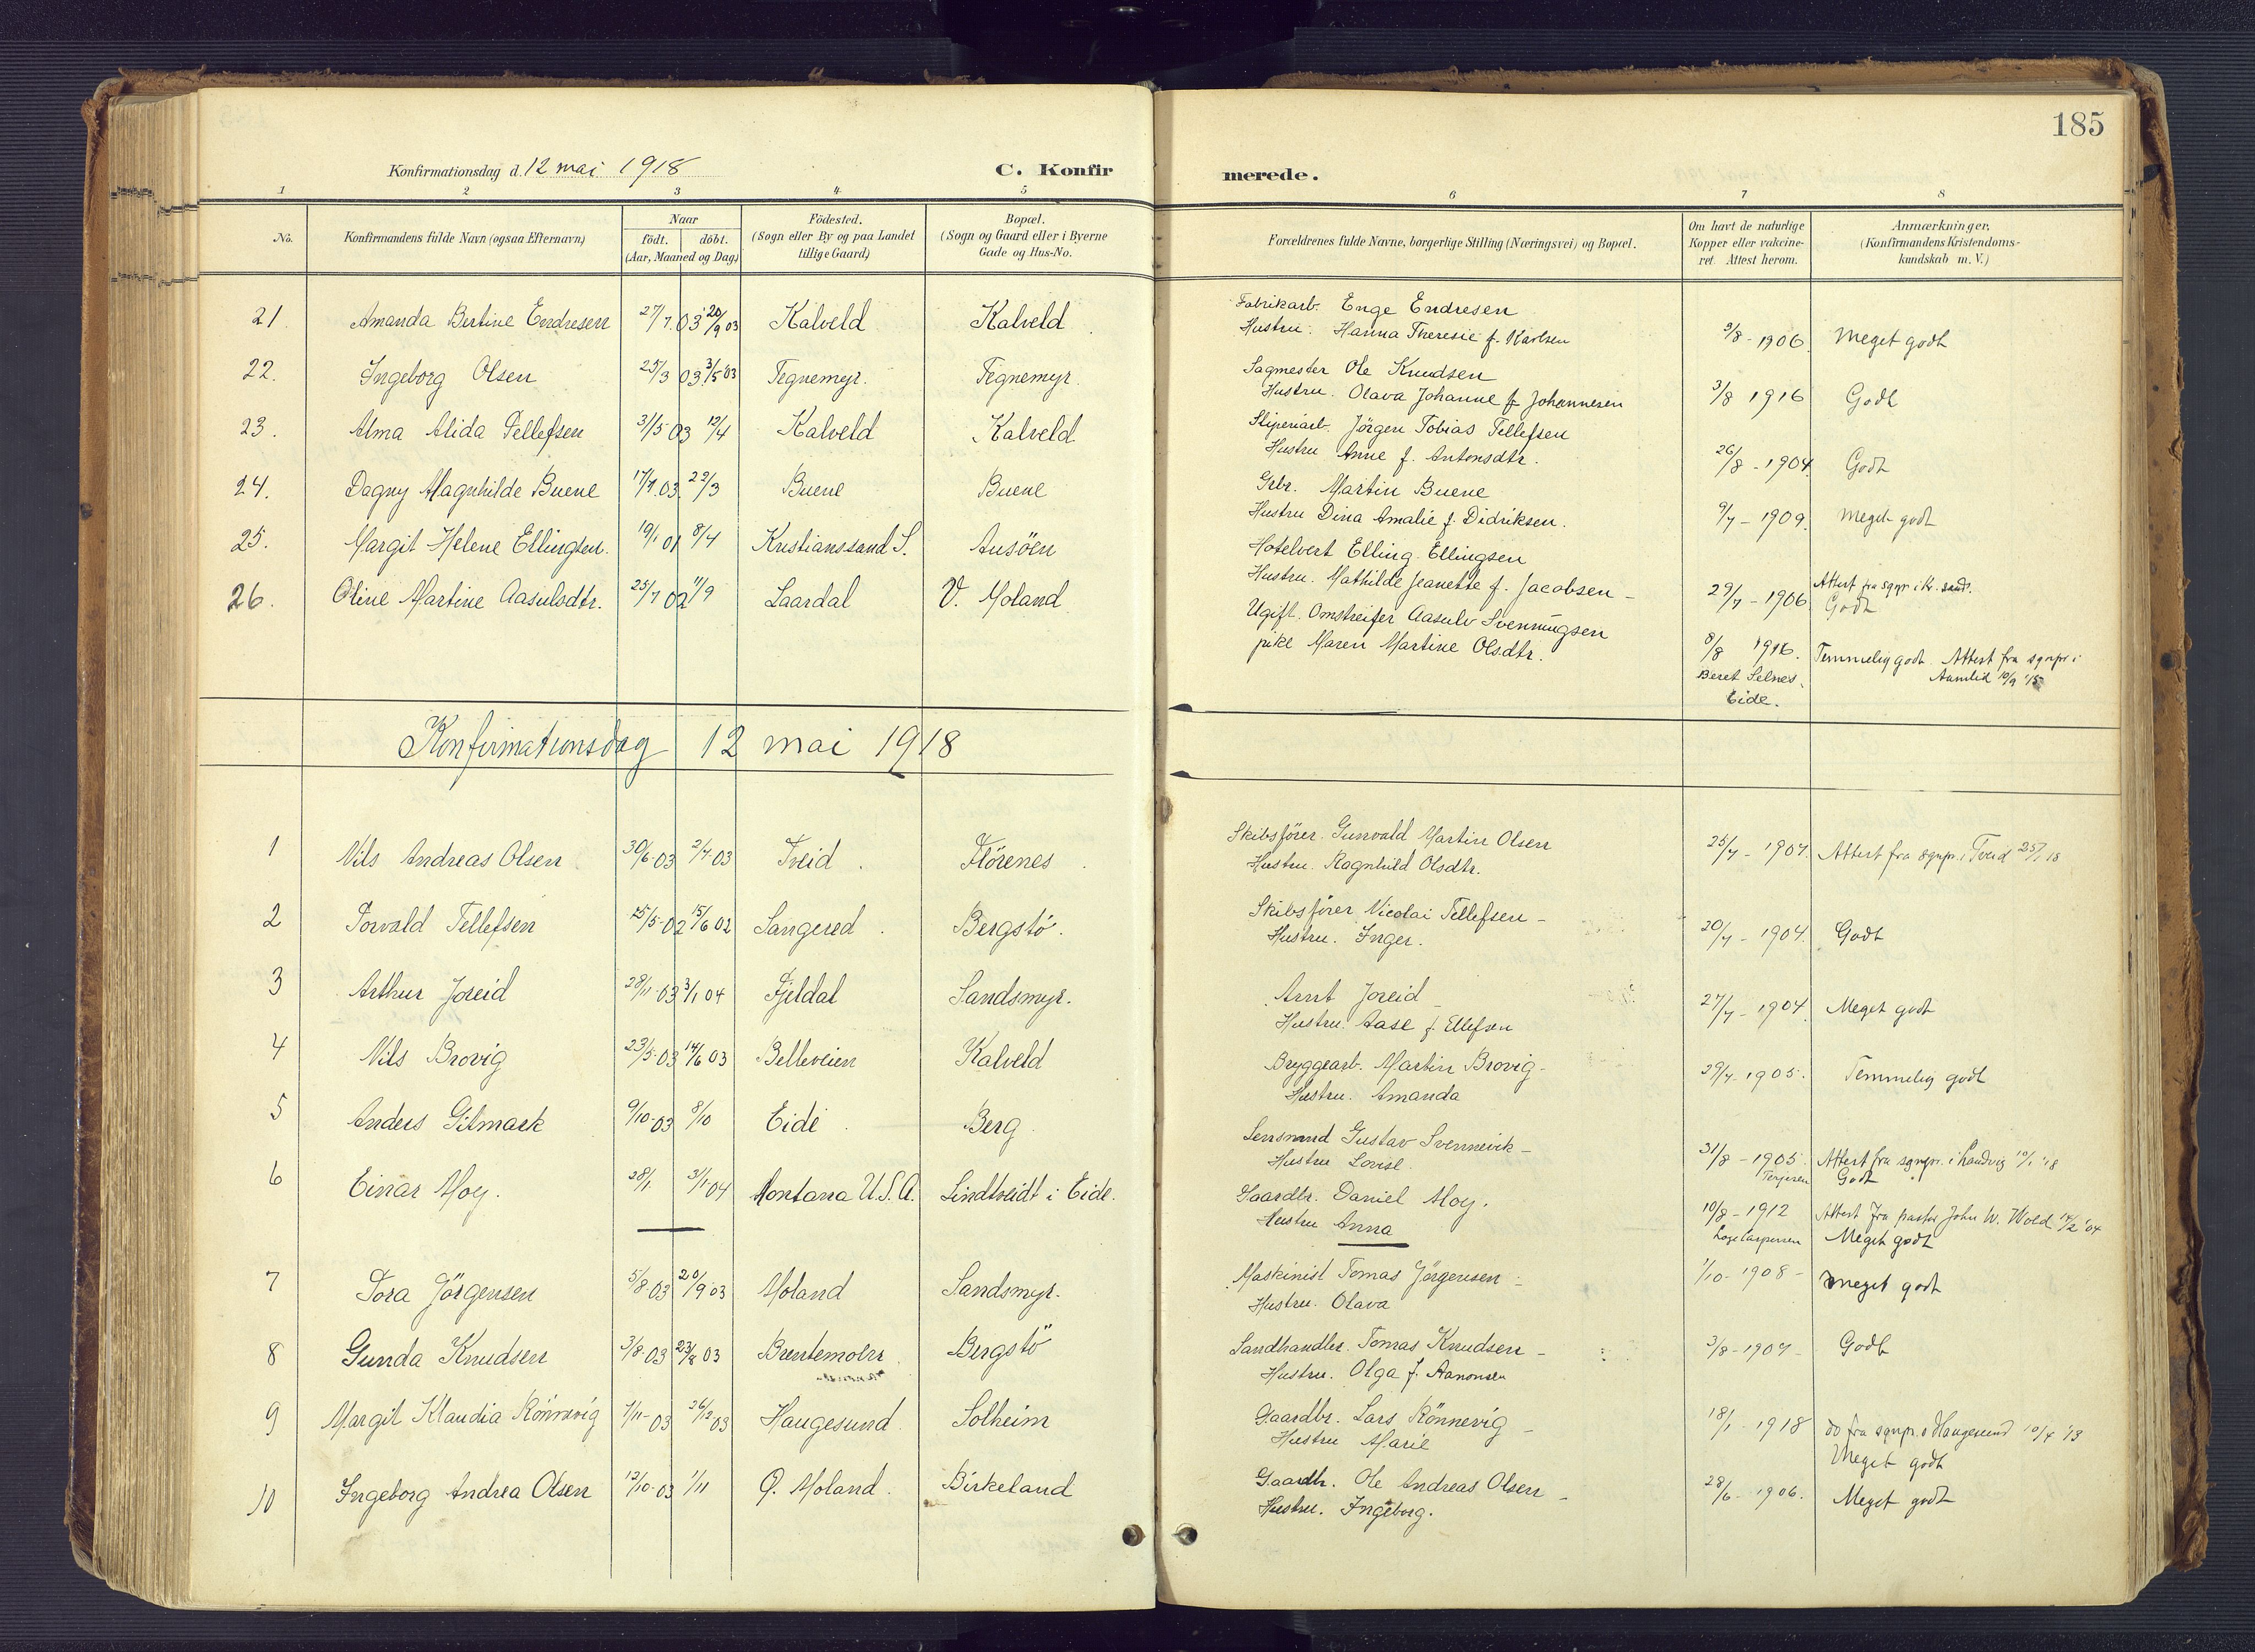 185
Konfirmationsdag d. 12 mai 1918
C. Konfir merede.
1 2 3 4 5 6 7 8
No.
Konfirmandens fulde Navn (ogsaa Efternavn)
Naar
födt. döbt.
(Aar, Maaned og Dag)
Födested.
(Sogn eller By og paa Landet
tillige Gaard)
Bopæl.
(Sogn og Gaard eller i Byerne
Gade og Hus-No.
Forældrenes fulde Navne, borgerlige Stilling (Næringsvei) og Bopæl.
Om havt de naturlige
Kopper eller vakcine-
ret. Attest herom.
Anmærkninger.
(Konfirmandens Kristendoms-
kundskab m. V.)
21. Amanda Bertine Endresen 27/7 03 20/9 03 Kalveld Kalveld
Fabrikarb. Enge Endresen
Hustru. Hanna Theresie f. Karlsen 9/8 - 1906 Meget godt
22. Ingeborg Olsen 25/3 03 3/5 03 Tegnemyr. Tegnemyr.
Sagmester Ole Knudsen
Hustru. Olava Johanne f. Johannesen 3/8 1916 Godt
23. Alma Alida Tellefsen 31/5 03 12/4 Kalveld Kalveld
Sliperiarb. Jörgen Tobias Tellefsen
Hustru Anne f. Antonsdtr. 26/8 - 1904 Godt
24. Dagny Magnhilde Buene 17/1 03. 22/3 Buene Buene
Grbr. Martin Buene
Hustru Dina Amalie f. Didriksen. 9/7 - 1909. Meget godt
25. Margit Helene Ellingsen. 19/1 01 8/4 Kristianssand S. Ausöen
Hotelvert Elling Ellingsen
Hustru. Mathilde Jeanette f. Jacobsen - 29/7 - 1906 Attest fra sgnpr i Kr. sand.
Godt
26. Oline Martine Aasulsdtr. 25/7 02 11/9 Laardal V. Moland
Ugift. Omstreifer Aasulv Svenningsen
pike Maren Martine Olsdtr. 8/8 1916. Temmelig godt. Attest fra sgnpr i
Beret Selnes, Aamlid 10/9 '15
Eide.
Konfirmationsdag 12 mai 1918
1 Nils Andreas Olsen 30/6 03 2/7 03 Tveid Flörenes
Skibsförer. Gunvald Martin Olsen
Hustru. Ragnhild Olsdtr. 25/7 - 1907. Attest fra sgnpr. i Tveid 25/1 18
2 Torvald Tellefsen 25/5-02 15/6 02 Sangered Bergstö.
Skibsförer Nicolai Tellefsen -
Hustru. Inger. 20/7 - 1904. Godt
3 Arthur Joreid 28/11 03 3/1 04 Fjeldal Sandsmyr.
Arnt Joreid -
Hustru. Aase f. Ellefsen 27/7 - 1904. Meget godt
4 Nils Brovig 23/5-03 14/6 03 Belleveien Kalveld
Bryggearb. Martin Brovig -
Hustru. Amanda 29/7 - 1905. Temmelig godt
5 Anders Gitmark 9/10-03 8/10 Eide Berg
Lensmand Gustav Svennevik -
Hustru Lovise. 31/8 - 1905. Attest fra sgnpr. i Landvig 10/1 '18
Terjesen Godt
6 Einar Moy. 28/1 3/1 04 Montana U.S.A. Lindtveidt i Eide.
Gaardbr. Daniel Moy.
Hustru Anna 10/8 - 1912 Attest fra pastor John W. Wold 14/2 '04
Meget godt
7 Tora Jörgensen 5/8 03 20/9 03 Moland Sandsmyr.
Maskinist Tomas Jörgensen -
Hustru. Olava 1/10 - 1908 - Meget godt
8 Gunda Knudsen 3/8-03 23/8 03 Brentemoen Bergstö
Sandhandler. Tomas Knudsen -
Hustru. Olga f. Aanonsen 3/8 - 1907 - Godt
9 Margit Klaudia Rönnevig 7/11-03 26/12 03 Haugesund Solheim
Gaardbr. Lars Rönnevig -
Hustru Marie 18/1 - 1918 do fra sgnpr. i Haugesund 10/4 '13
Meget godt
10 Ingeborg Andrea Olsen 12/10-03 1/11 Ö. Moland. Birkeland
Gaardbr. Ole Andreas Olsen -
Hustru. Ingeborg. 28/6 - 1906. Meget godt